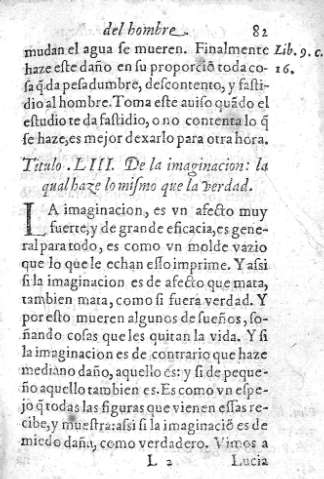 del hombre. 82
mudan el agua se mueren. Finalmente Lib. 9. c.
haze este daño en su proporciõ toda co- 16.
sa q̃ da pesadumbre, descontento, y fasti-
dio al hombre. Toma este auiso quãdo el
estudio te da fastidio, o no contenta lo q̃
se haze, es mejor dexarlo para otra hora.
Titulo .LIII. De la imaginacion: la
qual haze lo mismo que la verdad.
LA imaginacion, es vn afecto muy
fuerte, y de grande eficacia, es gene-
ral para todo, es como vn molde vazio
que lo que le echan esso imprime. Y assi
si la imaginacion es de afecto que mata,
tambien mata, como si fuera verdad. Y
por esto mueren algunos de sueños, so-
ñando cosas que les quitan la vida. Y si
la imaginacion es de contrario que haze
mediano daño, aquello es: y si de peque-
ño aquello tambien es. Es como vn espe-
jo q̃ todas las figuras que vienen essas re-
cibe, y muestra: assi si la imaginaciõ es de
miedo daña, como verdadero. Vimos a
L 2 Lucia